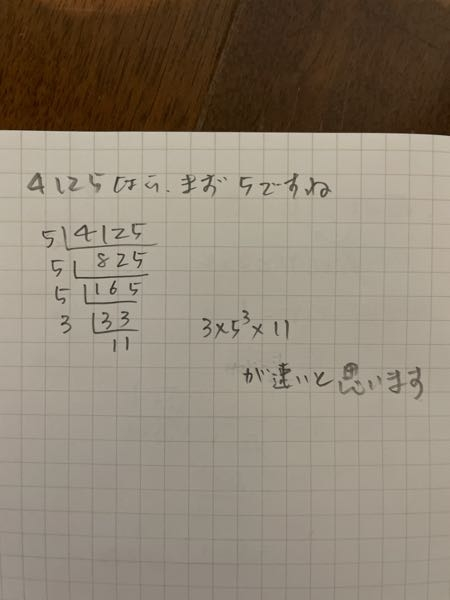 4125なら、まず5ですね
5 4125
5 825
5 165
3 33
11
3×5³×11
が速いと思います